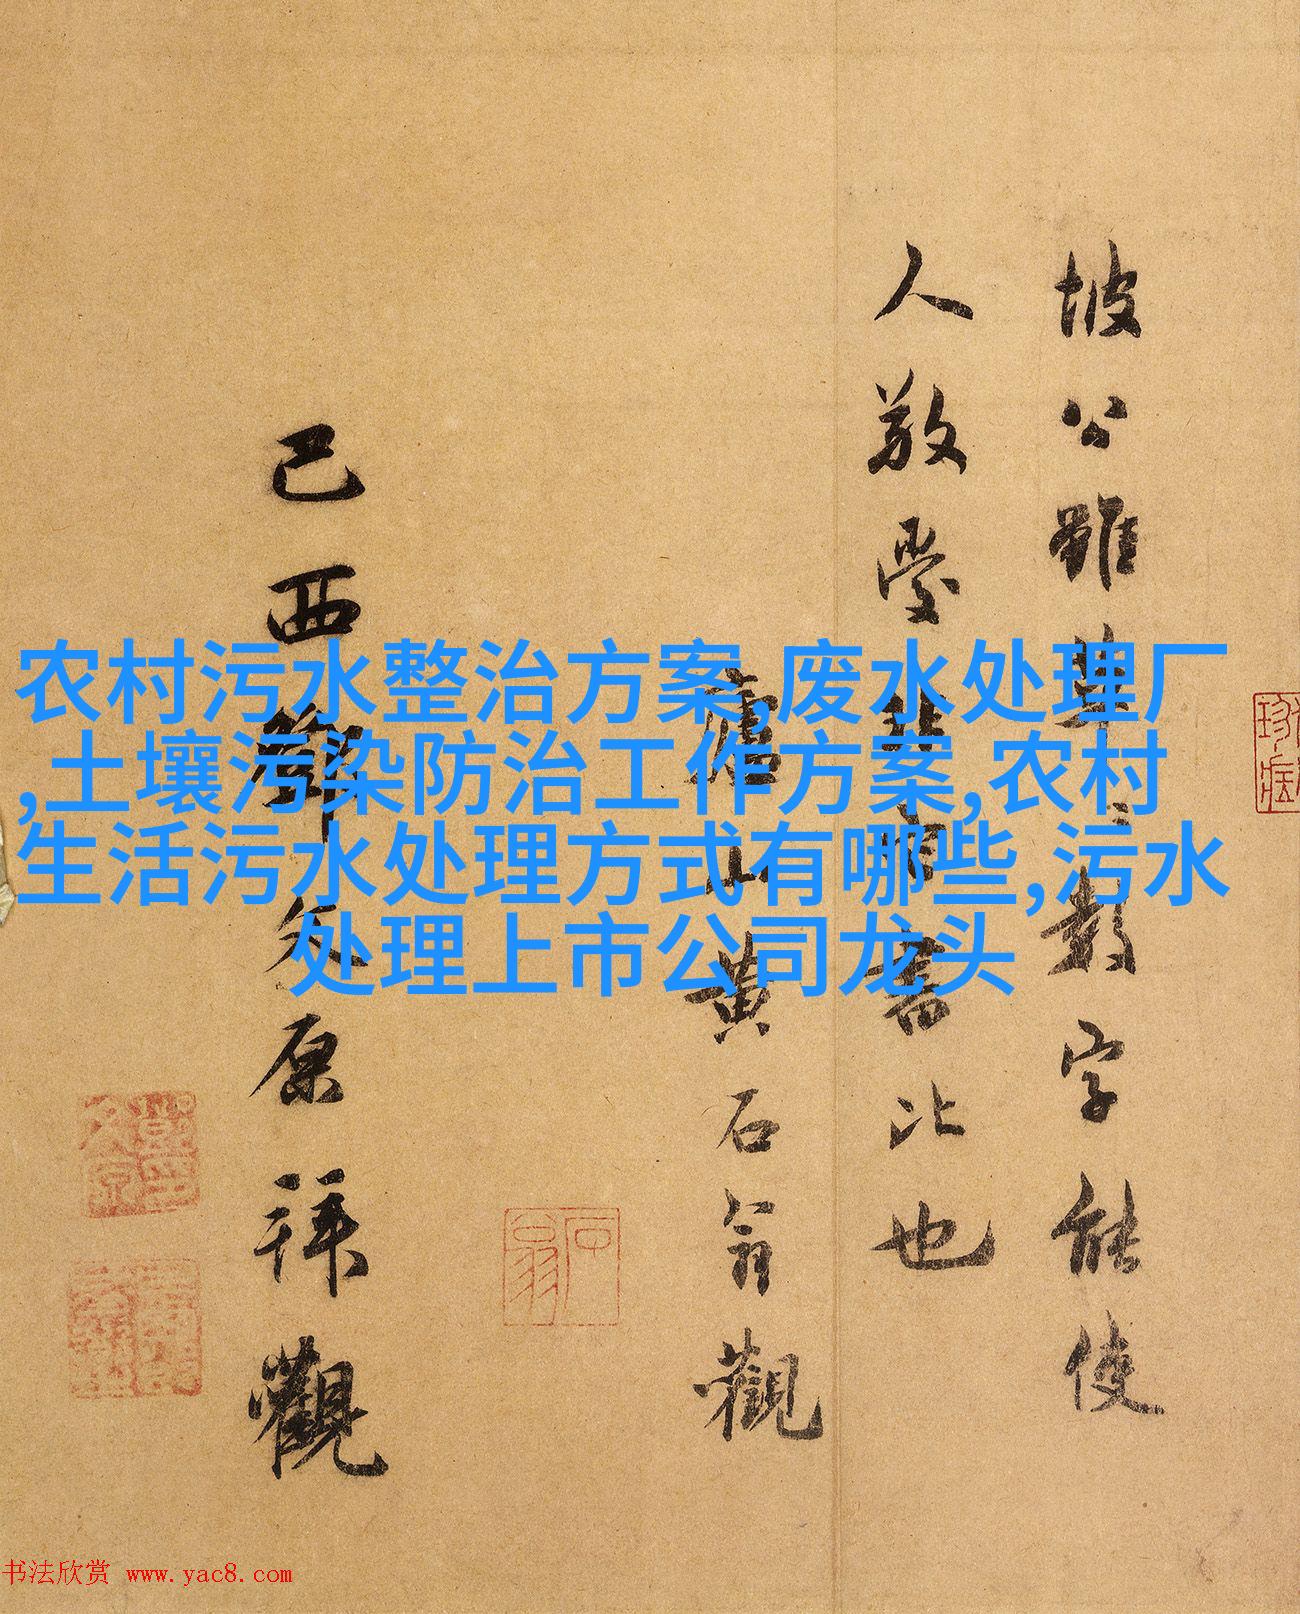 坡公雖草草數字能使
人敬愛
書比也
廬山黃石翁觀
己酉鄧文原拜觀
石翁
农村污水整治方案,废水处理厂
,土壤污染防治工作方案,农村
生活污水处理方式有哪些,污水
处理上市公司龙头
书法欣赏 www.yac8.com